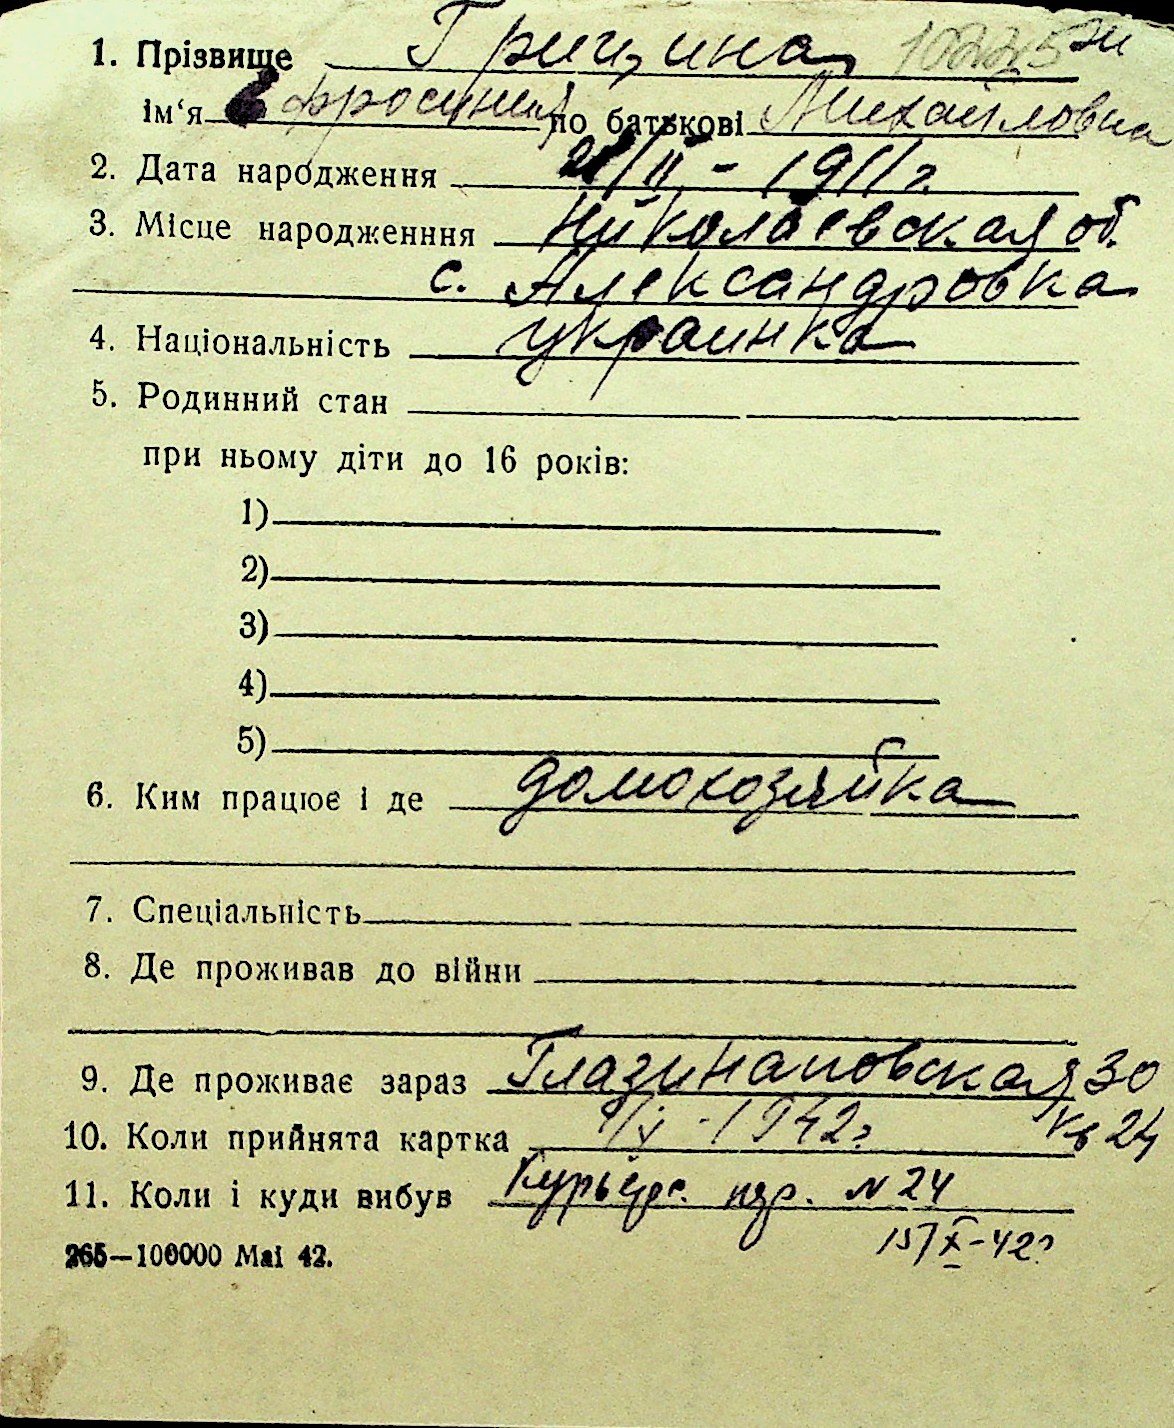 1. Прізвище Грицина 102245 эи
ім‘я Ефросиния по батькові Михайловна
2. Дата народження /II - 1911 г.
3. Місце народженння Николаевская об.
с. Александровка
4. Національність украинка
5. Родинний стан
при ньому діти до 16 років:
1)
2)
3)
4)
5)
6. Ким працює і де домохозяйка
7. Спеціальність
8. Де проживав до війни
9. Де проживає зараз 30
10. Коли прийнята картка 1942 г. кв 24
11. Коли і куди вибув Курьерс. пер. N 24
15/X-42 г
265—100000 Маі 42.